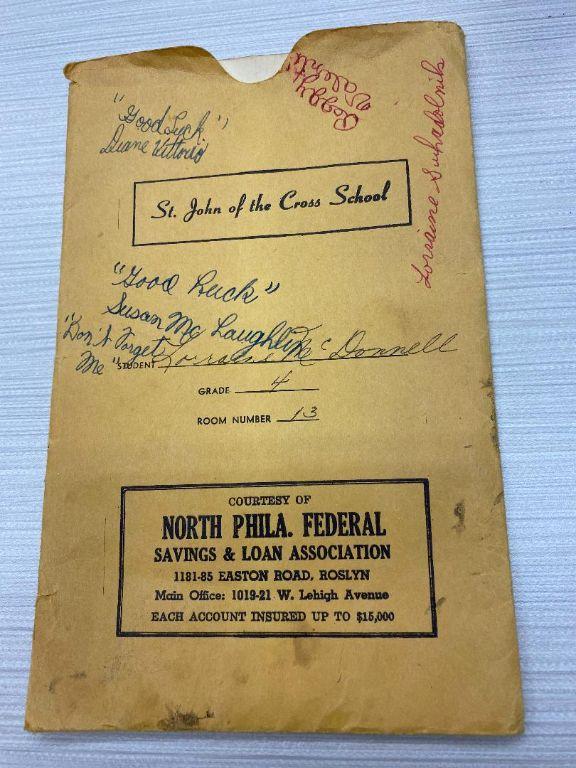 Peggy
Valenti
Lorraine
"Good Luck"
Diane Vittorio
St. John of the Cross School
"Good Luck"
Susan Mc Laughlin
"Don't Forget
Me"
STUDENT Lorraine McDonnell
GRADE 4
ROOM NUMBER 13
COURTESY OF
NORTH PHILA. FEDERAL
SAVINGS & LOAN ASSOCIATION
1181-85 EASTON ROAD, ROSLYN
Main Office: 1019-21 W. Lehigh Avenue
EACH ACCOUNT INSURED UP TO $15,000